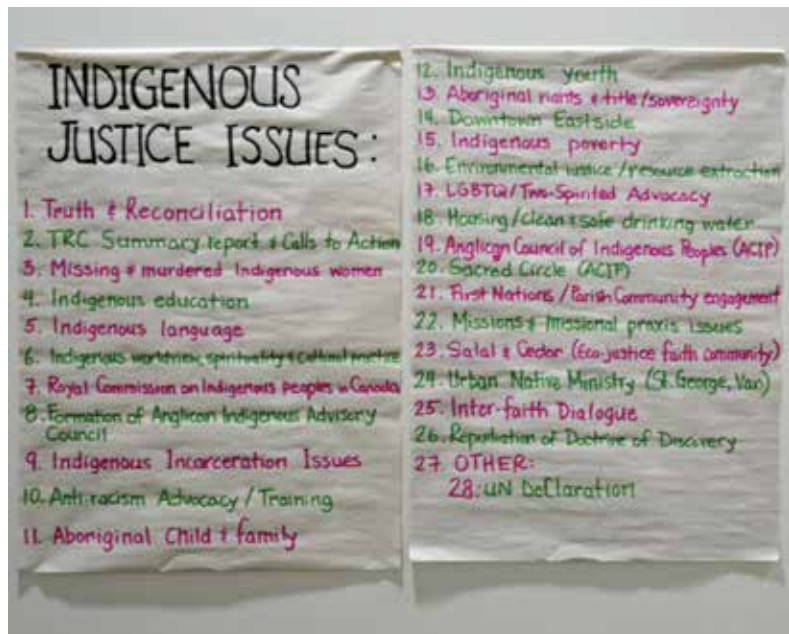 INDIGENOUS
JUSTICE ISSUES:
1. Truth & Reconciliation
2. TRC Summary report & Calls to Action
3. Missing & murdered Indigenous women
4. Indigenous education
5. Indigenous language
6. Indigenous worldview, spirituality & cultural
7. Royal Commission on Indigenous peoples in Canada
8. Formation of Anglican Indigenous Advisory
Council
9. Indigenous Incarceration Issues
10. Anti-racism Advocacy / Training
11. Aboriginal Child & family
12. Indigenous youth
13. Aboriginal rights & title/sovereignty
14. Downtown Eastside
15. Indigenous poverty
16. Environmental justice / resource extraction
17. LGBTQ/Two-Spirited Advocacy
18. Housing/clean & safe drinking water
19. Anglican Council of Indigenous Peoples (ACIP)
20. Sacred Circle (ACIP)
21. First Nations / Parish Community engagement
22. Missions & missional praxis issues
23. Salal & Cedar (Eco-justice faith community)
24. Urban Native Ministry (St. George, Van)
25. Inter-faith Dialogue
26. Repudiation of Doctrine of Discovery
27. OTHER:
28. UN Declaration